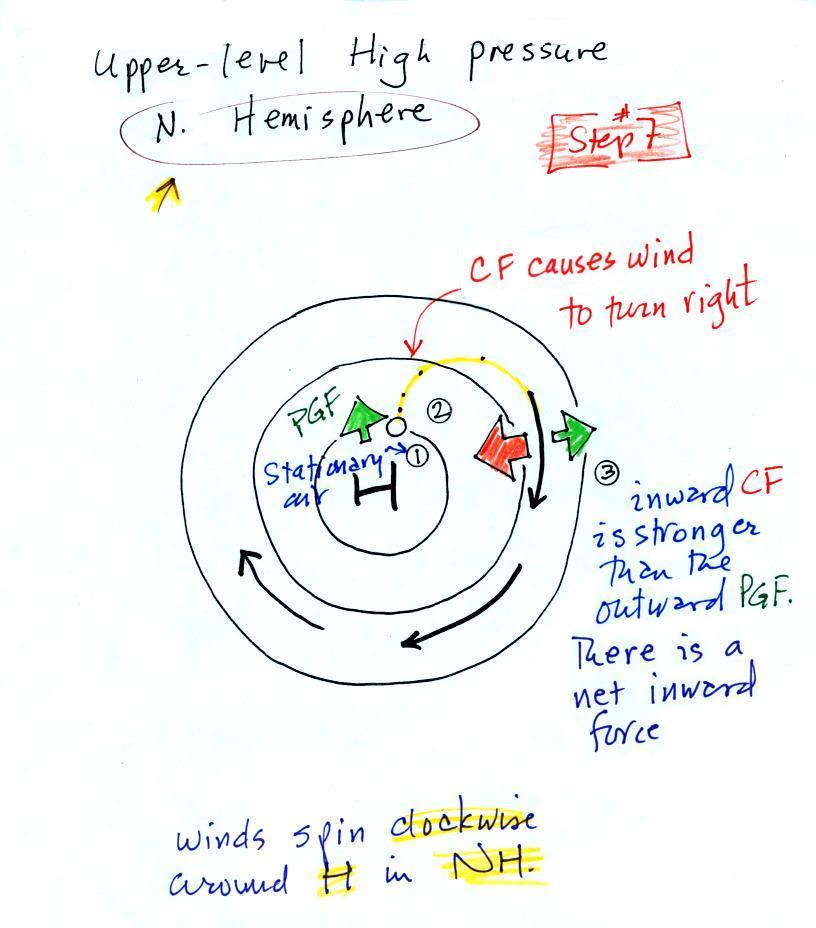 Upper-level High pressure
N. Hemisphere
Step #7
CF causes wind
to turn right
PGF
②
Stationary
air
①
H
③
inward CF
is stronger
than the
outward PGF.
There is a
net inward
force
winds spin clockwise
around H in NH.